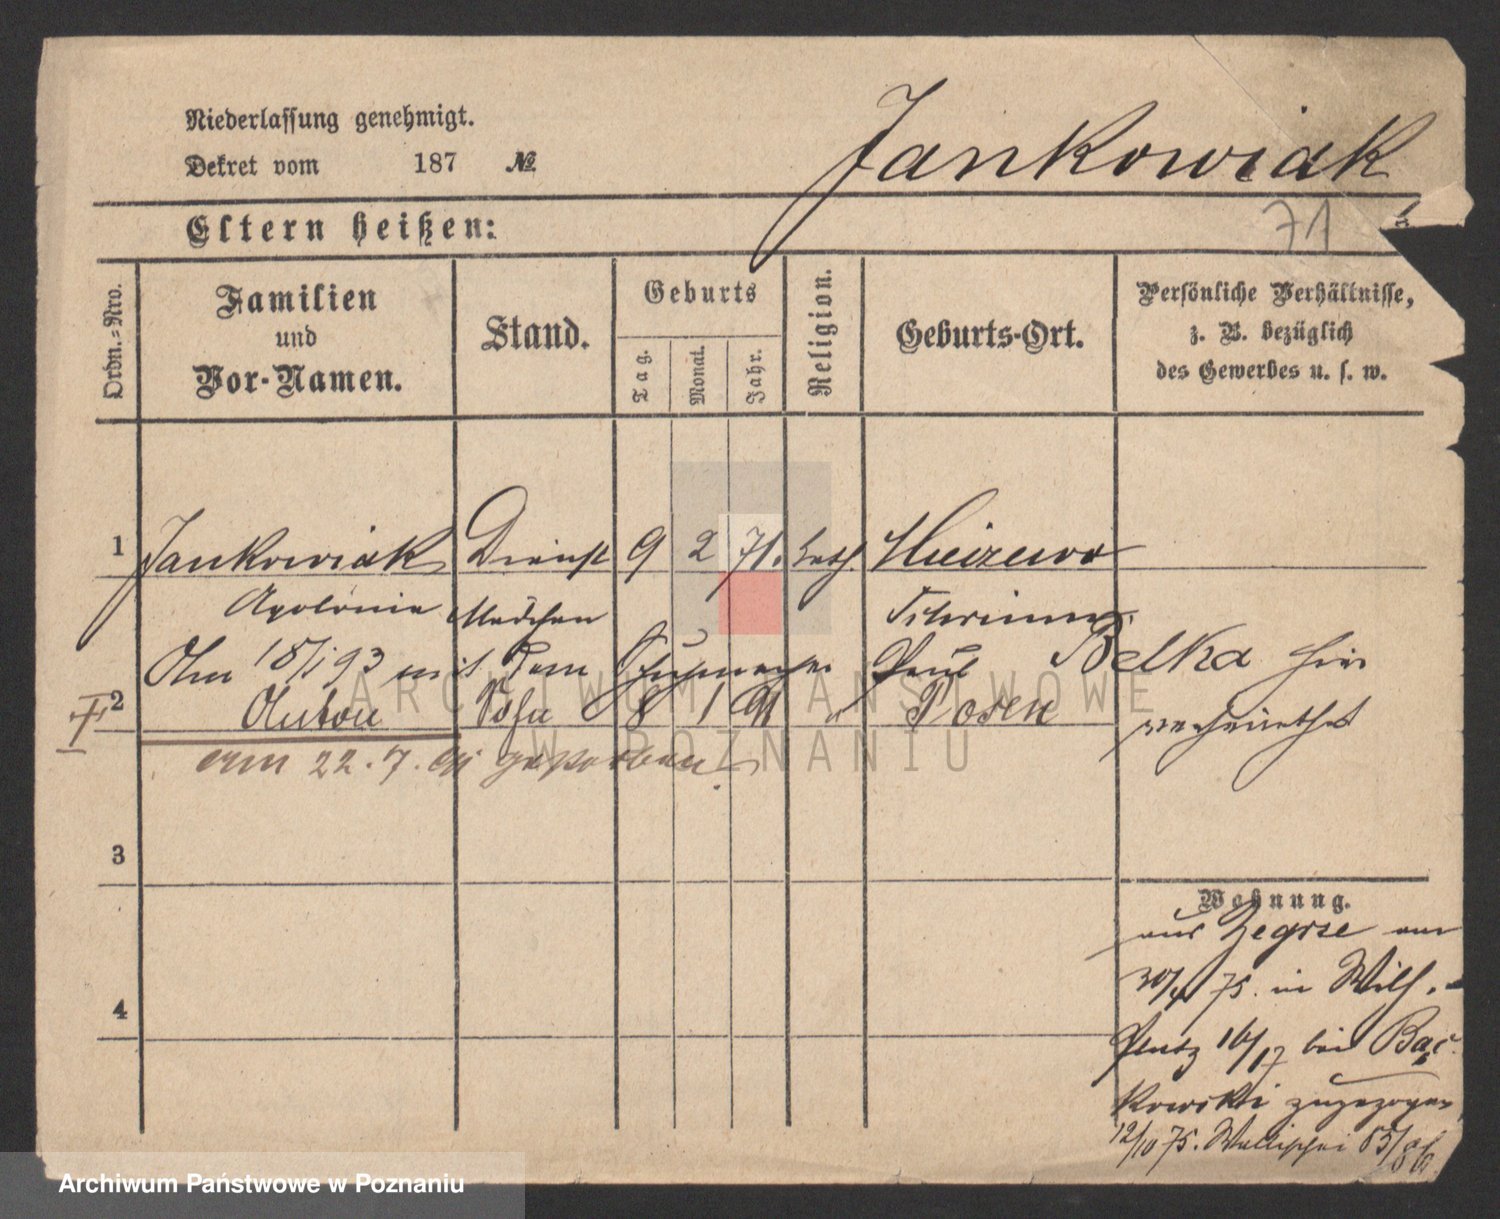 Niederlassung genehmigt.
Dekret vom 187 №
Jankowiak
71
Eltern heißen:
Ordn.-Nro.
Familien
und
Vor-Namen.
Stand.
Geburts
Tag.
Monat.
Jahr.
Religion.
Geburts-Ort.
Persönliche Verhältnisse,
z. B. bezüglich
des Gewerbes u. s. w.
1 Jankowiak Dienst 9 2 71. kath.
Apolonia Mädchen
Am 18/1 93 mit dem Paul Belka hier
verheirathet
2 Anton Sohn 8 1 91 " Posen
am 22.7.91 gestorben
3
4
Wohnung.
aus Zegrze am
30/4 75. in Wilh.-
Platz 16/17 bei
kowski zugezogen
12/10 75. Wallischei
ARCHIWUM PAŃSTWOWE
W POZNANIU
Archiwum Państwowe w Poznaniu